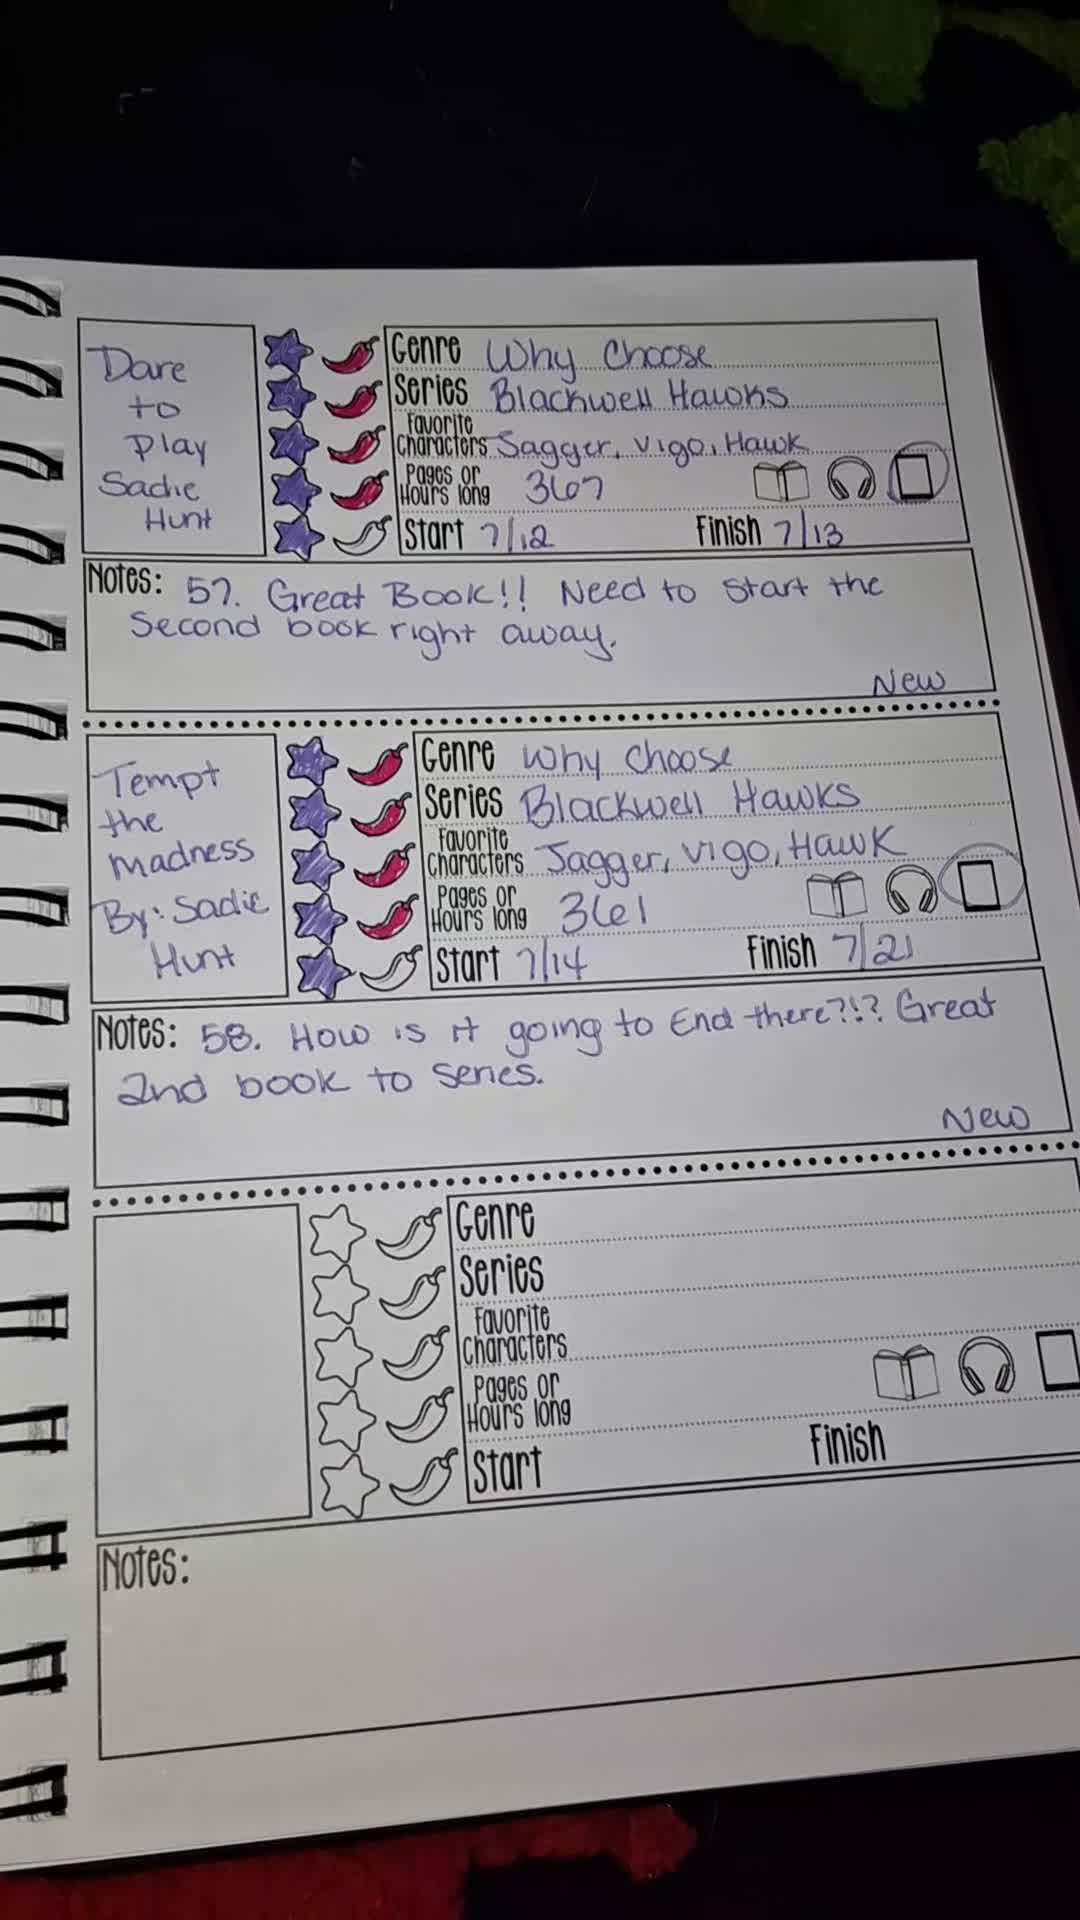 Dare
to
Play
Sadie
Hunt
Genre Why Choose
Series Blackwell Hawks
Favorite
Characters Jagger, Vigo, Hawk
Pages or
Hours long 367
Start 7/12 Finish 7/13
Notes: 57. Great Book!! Need to start the
second book right away.
New
Tempt
the
Madness
By: Sadie
Hunt
Genre Why Choose
Series Blackwell Hawks
Favorite
Characters Jagger, Vigo, Hawk
Pages or
Hours long 361
Start 7/14 Finish 7/21
Notes: 58. How is it going to End there?!? Great
2nd book to series.
New
Genre
Series
Favorite
Characters
Pages or
Hours long
Start Finish
Notes: